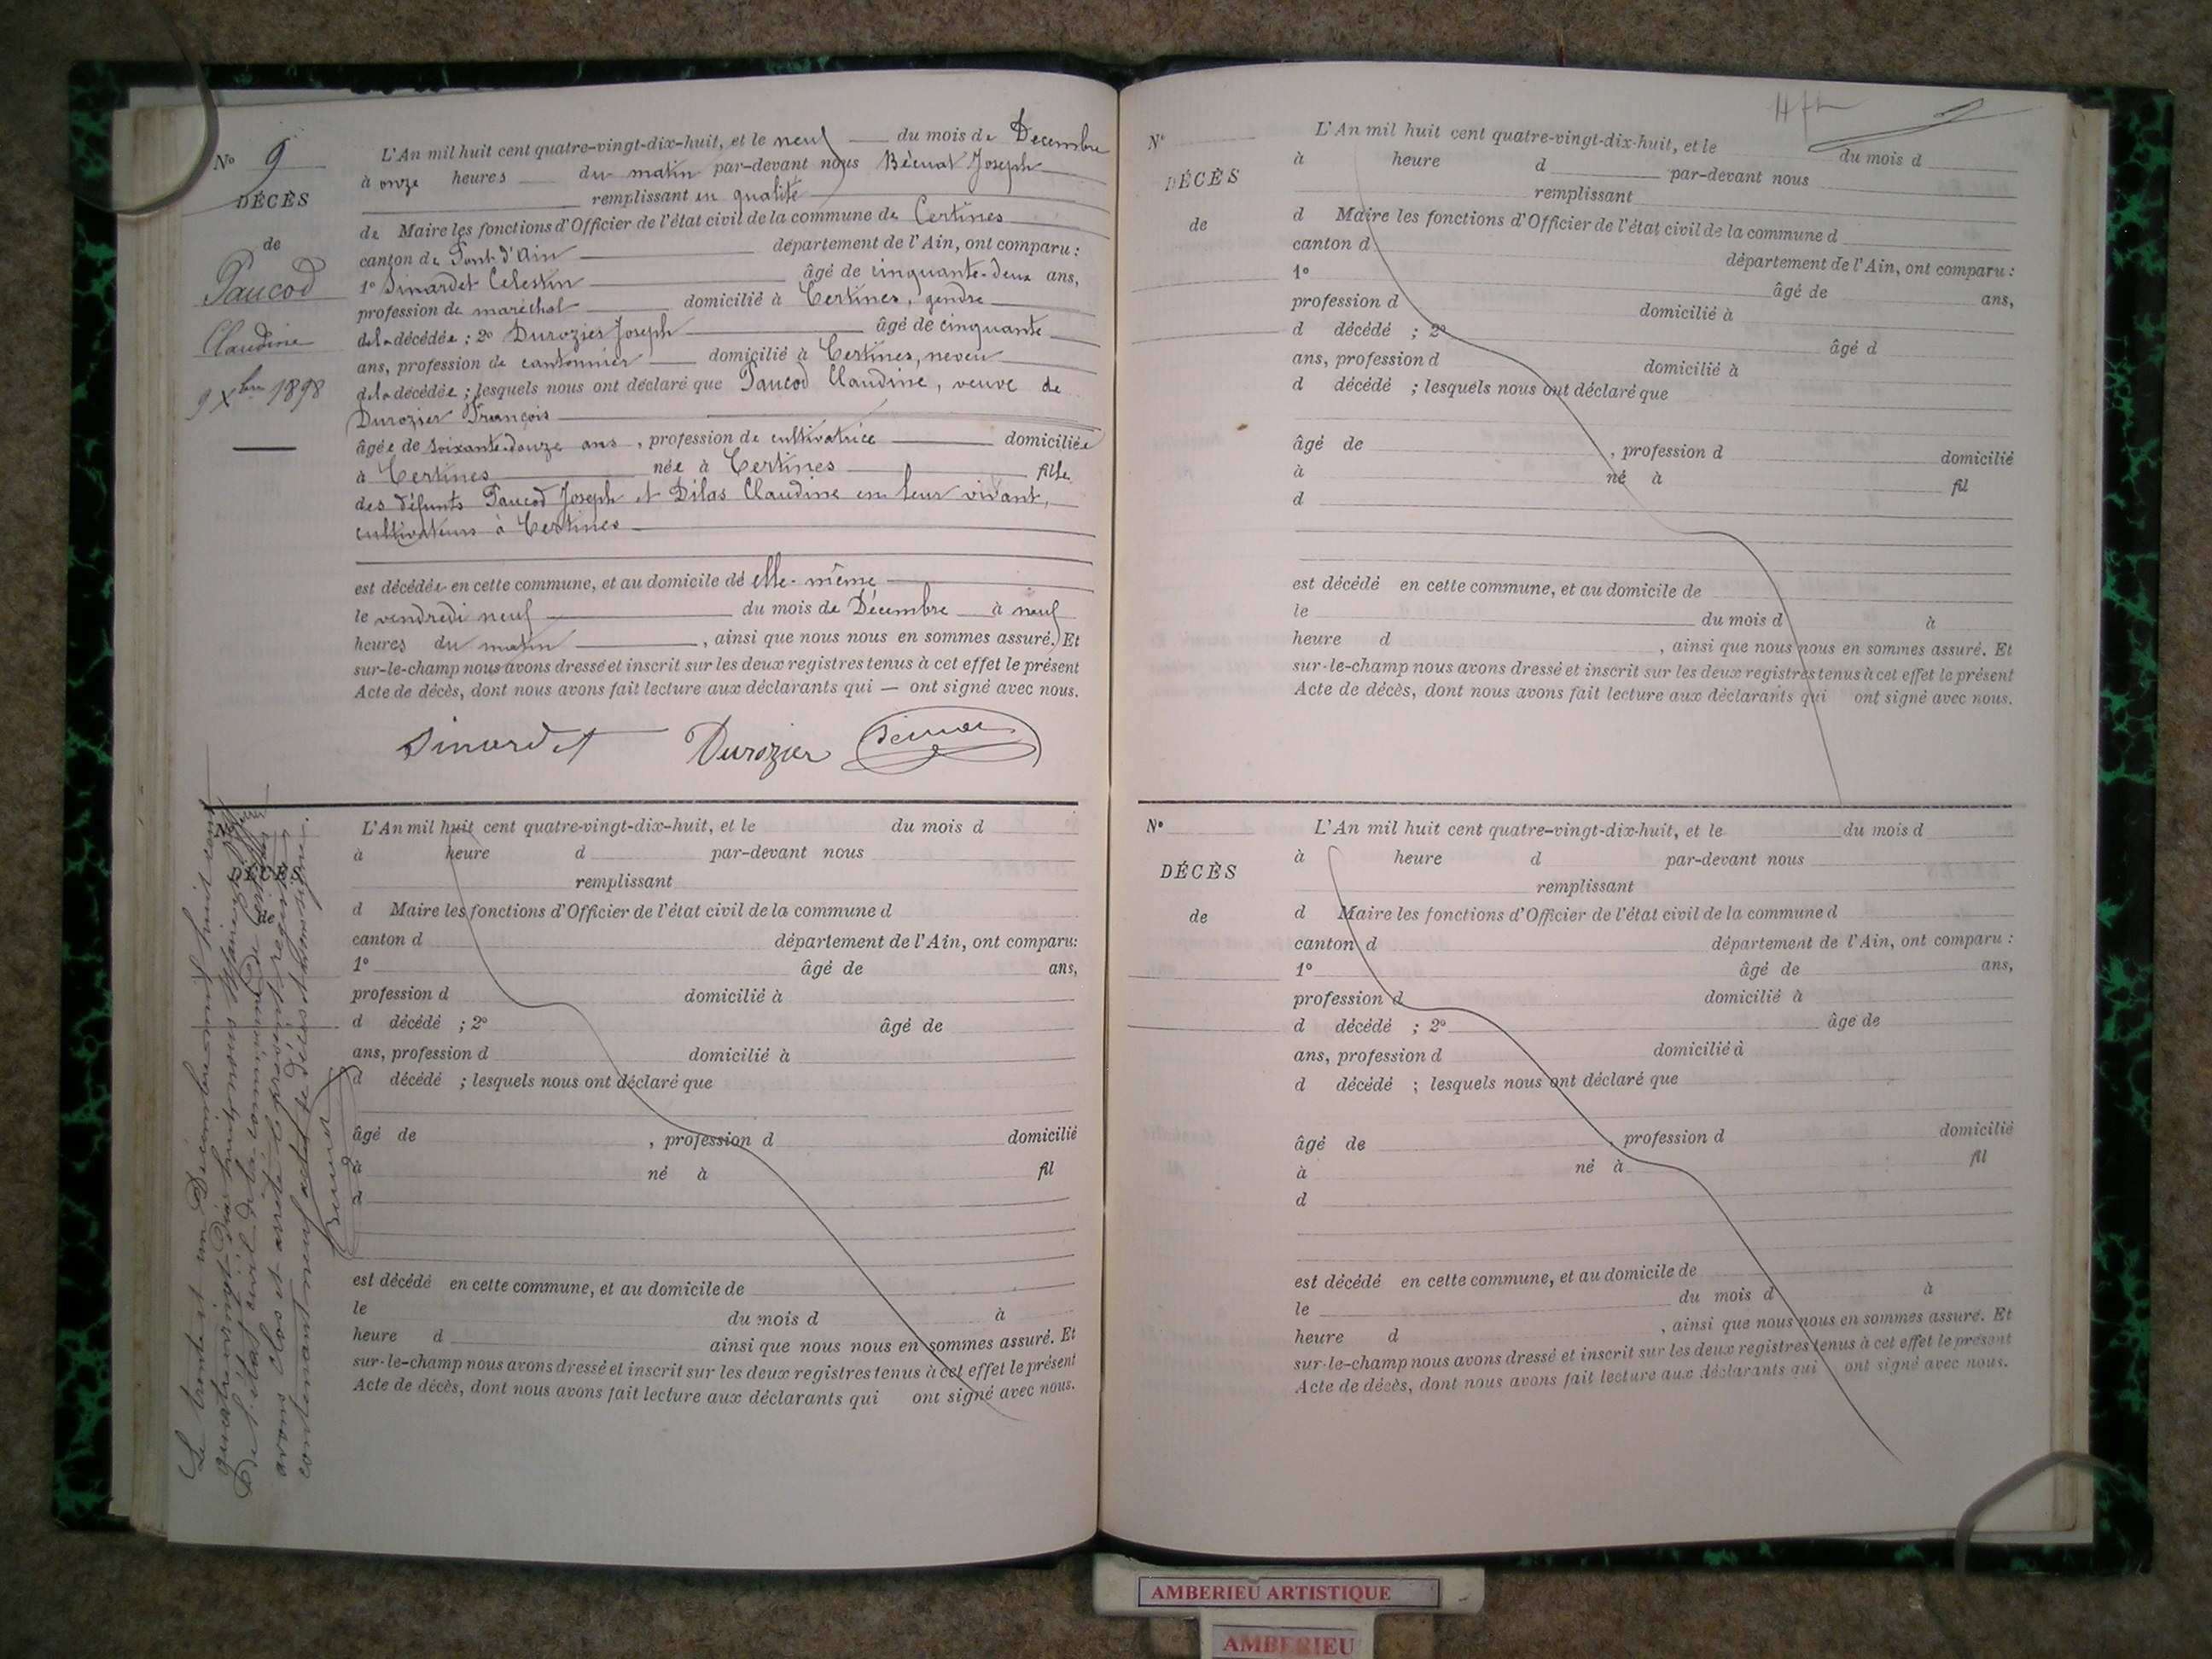 N° 9
DÉCÈS
de
Paucod
Claudine
9 Xbre 1898
L'An mil huit cent quatre-vingt-dix-huit, et le neuf du mois de Décembre
à onze heures du matin par-devant nous Joseph
remplissant en qualité
de Maire les fonctions d'Officier de l'état civil de la commune de Certines
canton de Pont-d'Ain département de l'Ain, ont comparu :
1° Sinardet Célestin âgé de cinquante-deux ans,
profession de maréchal domicilié à Certines, gendre
de la décédée ; 2° Durozier Joseph âgé de cinquante
ans, profession de cantonnier domicilié à Certines, neveu
de la décédée ; lesquels nous ont déclaré que Paucod Claudine, veuve de
Durozier François
âgée de soixante-douze ans, profession de cultivatrice domiciliée
à Certines née à Certines fille
des défunts Paucod Joseph et Dilas Claudine en leur vivant,
cultivateurs à Certines
est décédée en cette commune, et au domicile de elle-même
le vendredi neuf du mois de Décembre à neuf
heures du matin, ainsi que nous nous en sommes assuré. Et
sur-le-champ nous avons dressé et inscrit sur les deux registres tenus à cet effet le présent
Acte de décès, dont nous avons fait lecture aux déclarants qui — ont signé avec nous.
Sinardet Durozier
DÉCÈS
de
L'An mil huit cent quatre-vingt-dix-huit, et le du mois d
à heure d par-devant nous
remplissant
d Maire les fonctions d'Officier de l'état civil de la commune d
canton d département de l'Ain, ont comparu:
1° âgé de ans,
profession d domicilié à
d décédé ; 2° âgé de
ans, profession d domicilié à
d décédé ; lesquels nous ont déclaré que
âgé de , profession d domicilié
à né à fil
d
est décédé en cette commune, et au domicile de
le du mois d à
heure d ainsi que nous nous en sommes assuré. Et
sur-le-champ nous avons dressé et inscrit sur les deux registres tenus à cet effet le présent
Acte de décès, dont nous avons fait lecture aux déclarants qui ont signé avec nous.
Le trente et un Décembre mil huit cent
quatre-vingt-dix-huit, nous
de l'état civil de la commune de Certines
avons clos et arrêté le présent registre
contenant neuf actes de décès et avons signé.
N°
DÉCÈS
de
L'An mil huit cent quatre-vingt-dix-huit, et le du mois d
à heure d par-devant nous
remplissant
d Maire les fonctions d'Officier de l'état civil de la commune d
canton d département de l'Ain, ont comparu :
1° âgé de ans,
profession d domicilié à
d décédé ; 2° âgé d
ans, profession d domicilié à
d décédé ; lesquels nous ont déclaré que
âgé de , profession d domicilié
à né à fil
d
est décédé en cette commune, et au domicile de
le du mois d à
heure d , ainsi que nous nous en sommes assuré. Et
sur-le-champ nous avons dressé et inscrit sur les deux registres tenus à cet effet le présent
Acte de décès, dont nous avons fait lecture aux déclarants qui ont signé avec nous.
N°
DÉCÈS
de
L'An mil huit cent quatre-vingt-dix-huit, et le du mois d
à heure d par-devant nous
remplissant
d Maire les fonctions d'Officier de l'état civil de la commune d
canton d département de l'Ain, ont comparu :
1° âgé de ans,
profession d domicilié à
d décédé ; 2° âge de
ans, profession d domicilié à
d décédé ; lesquels nous ont déclaré que
âgé de , profession d domicilié
à né à fil
d
est décédé en cette commune, et au domicile de
le du mois d à
heure d , ainsi que nous nous en sommes assuré. Et
sur-le-champ nous avons dressé et inscrit sur les deux registres tenus à cet effet le présent
Acte de décès, dont nous avons fait lecture aux déclarants qui ont signé avec nous.
AMBERIEU ARTISTIQUE
AMBERIEU